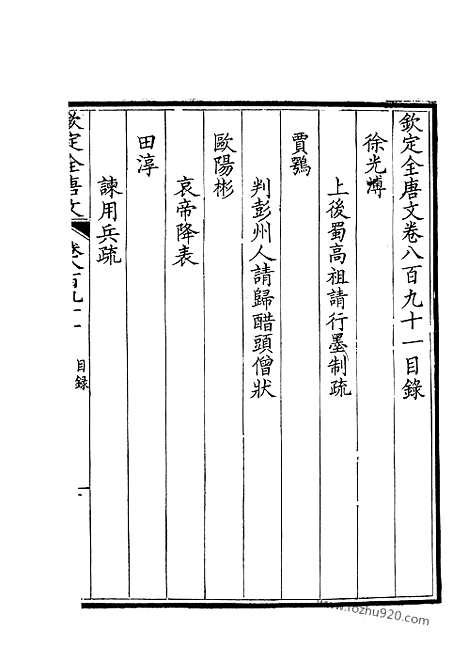 欽定全唐文卷八百九十一目錄
徐光溥
上後蜀高祖請行墨制疏
賈鶚
判彭州人請歸醋頭僧狀
歐陽彬
哀帝降表
田淳
諫用兵疏
欽定全唐文 卷八百九十一 目錄 一
www.fozhu920.com